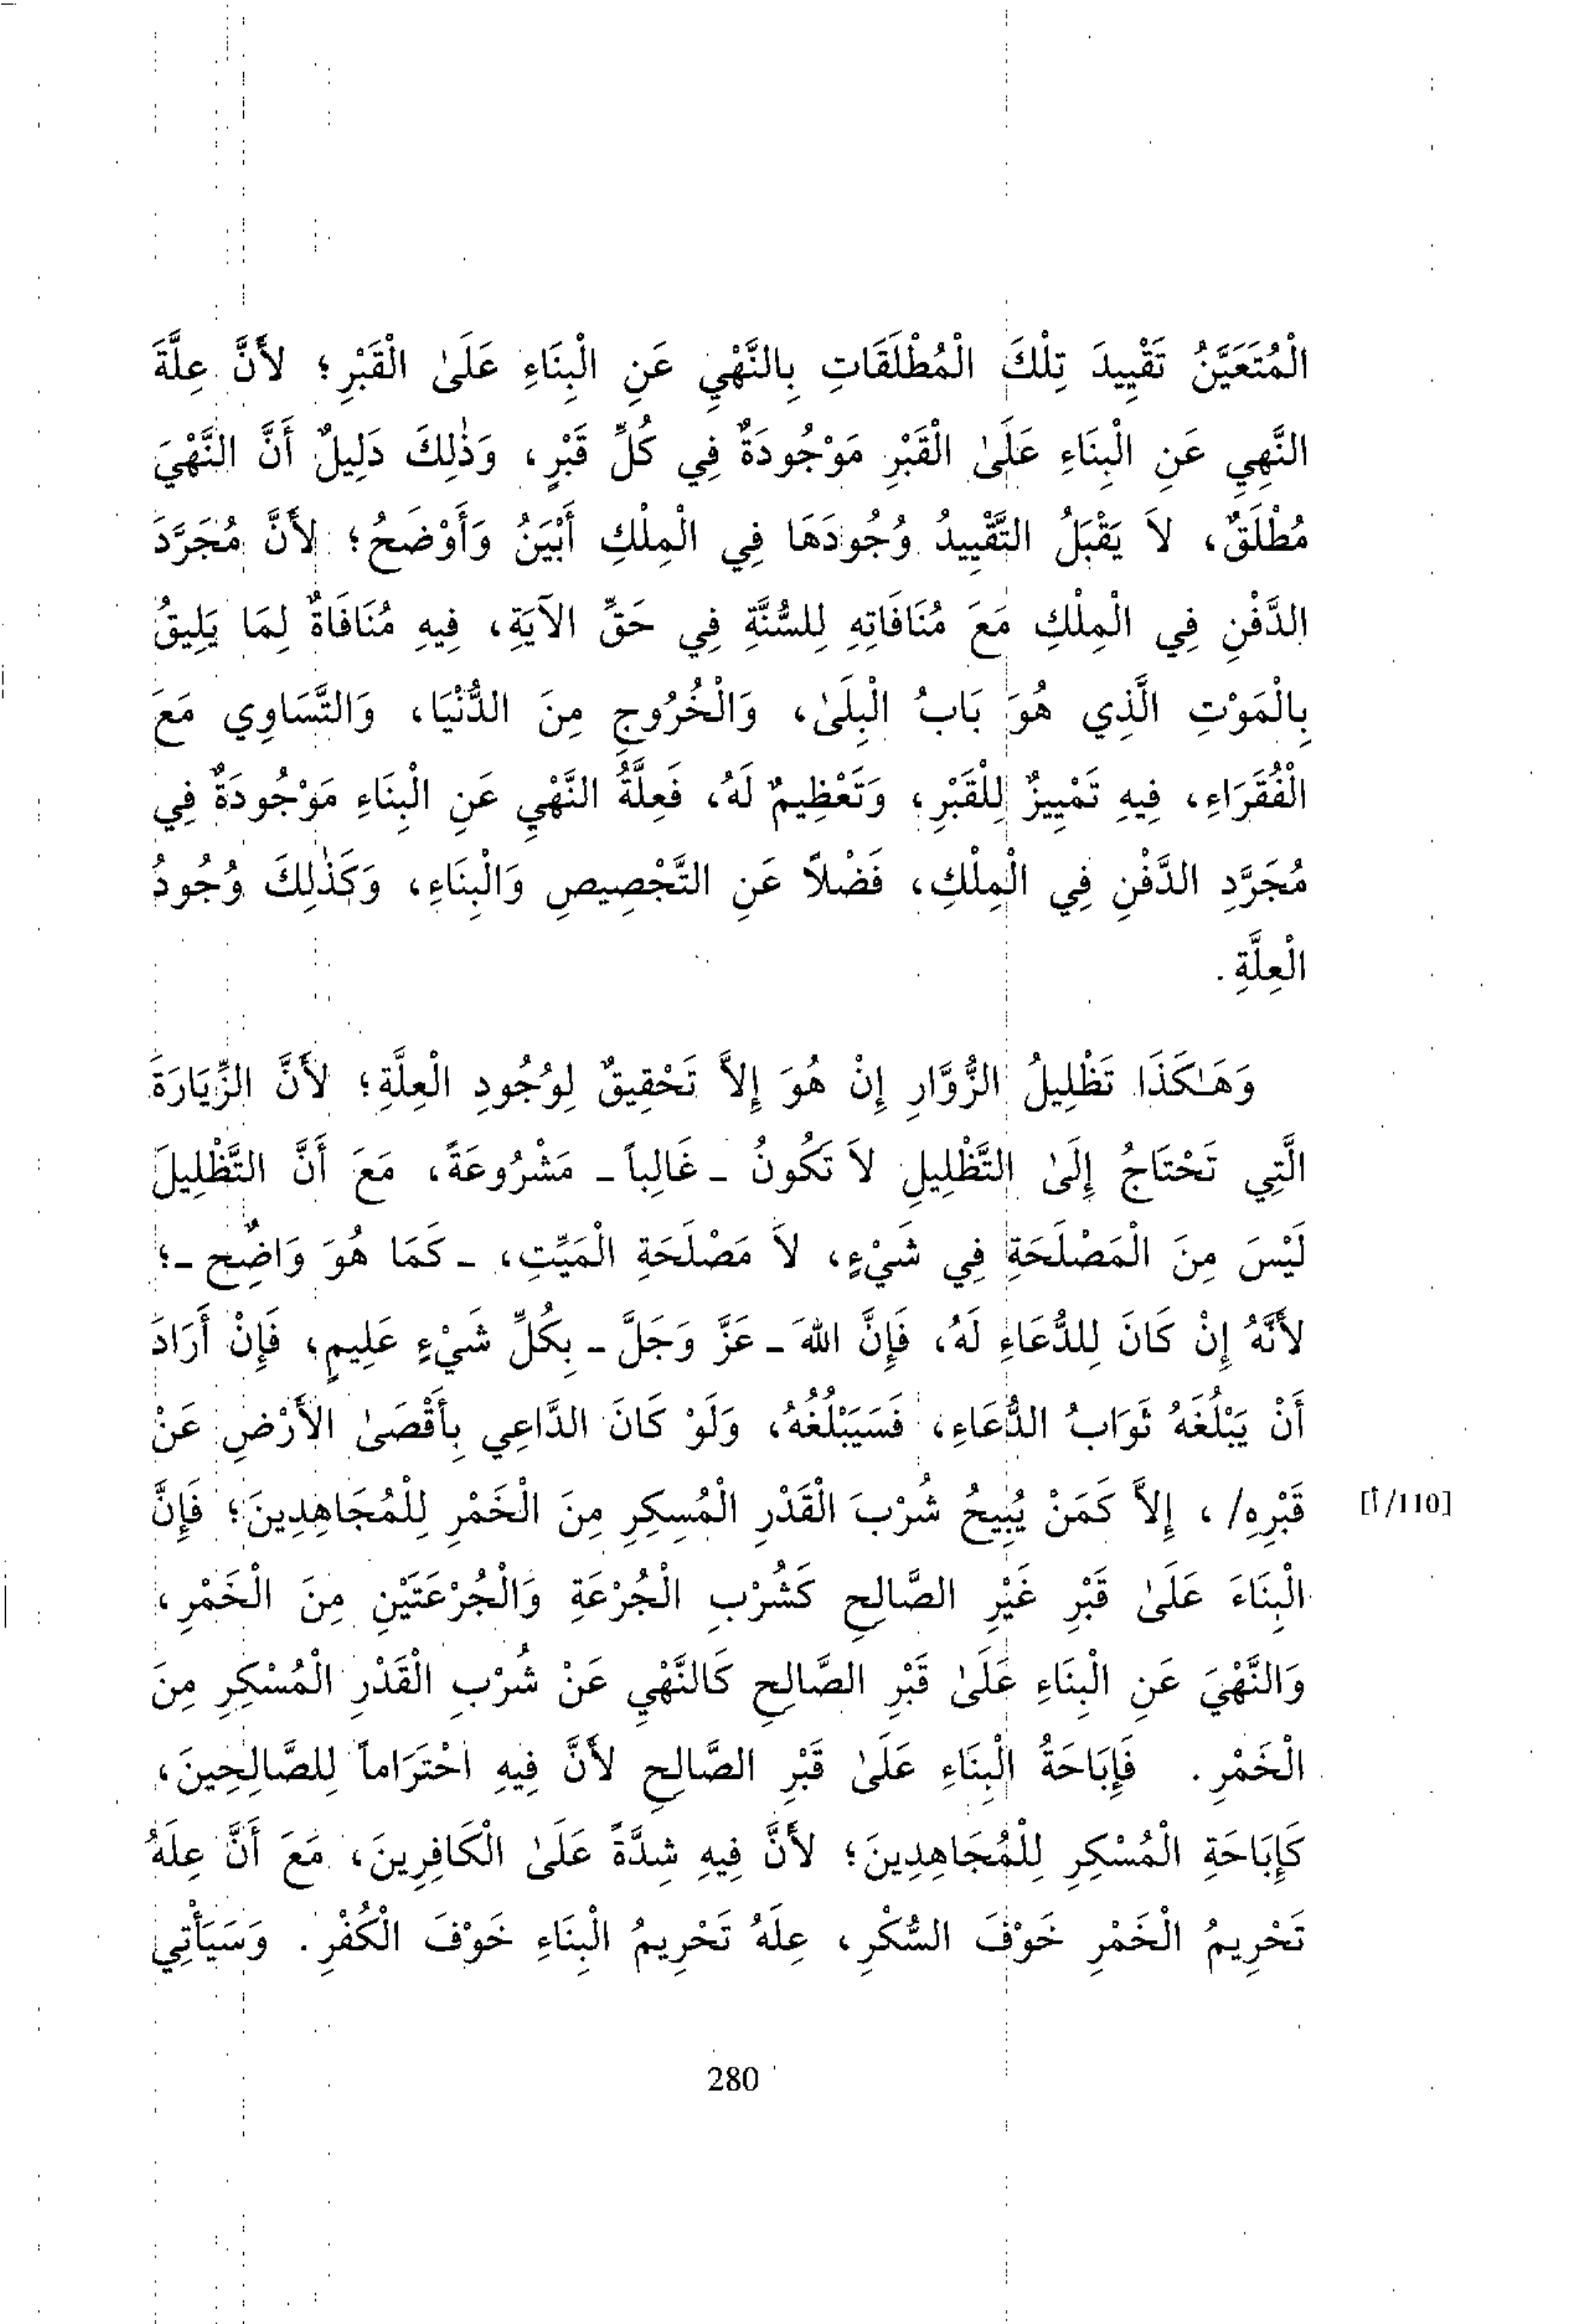 الْمُتَعَيَّنُ تَقْيِيدَ تِلْكَ الْمُطْلَقَاتِ بِالنَّهْيِ عَنِ الْبِنَاءِ عَلَىٰ الْقَبْرِ؛ لأَنَّ عِلَّةَ
النَّهِي عَنِ الْبِنَاءِ عَلَىٰ الْقَبْرِ مَوْجُودَةٌ فِي كُلِّ قَبْرٍ، وَذٰلِكَ دَلِيلٌ أَنَّ النَّهْيَ
مُطْلَقٌ، لاَ يَقْبَلُ التَّقْيِيدُ وُجُودَهَا فِي الْمِلْكِ أَبْيَنُ وَأَوْضَحُ؛ لأَنَّ مُجَرَّدَ
الدَّفْنِ فِي الْمِلْكِ مَعَ مُنَافَاتِهِ لِلسُّنَّةِ فِي حَقِّ الآيَةِ، فِيهِ مُنَافَاةٌ لِمَا يَلِيقُ
بِالْمَوْتِ الَّذِي هُوَ بَابُ الْبِلَىٰ، وَالْخُرُوجِ مِنَ الدُّنْيَا، وَالتَّسَاوِي مَعَ
الْفُقَرَاءِ، فِيهِ تَمْيِيزٌ لِلْقَبْرِ، وَتَعْظِيمٌ لَهُ، فَعِلَّةُ النَّهْيِ عَنِ الْبِنَاءِ مَوْجُودَةٌ فِي
مُجَرَّدِ الدَّفْنِ فِي الْمِلْكِ، فَضْلاً عَنِ التَّجْصِيصِ وَالْبِنَاءِ، وَكَذٰلِكَ وُجُودُ
الْعِلَّةِ.
وَهَـٰكَذَا تَظْلِيلُ الزُّوَّارِ إِنْ هُوَ إِلاَّ تَحْقِيقٌ لِوُجُودِ الْعِلَّةِ؛ لأَنَّ الزِّيَارَةَ
الَّتِي تَحْتَاجُ إِلَىٰ التَّظْلِيلِ لاَ تَكُونُ - غَالِباً - مَشْرُوعَةً، مَعَ أَنَّ التَّظْلِيلَ
لَيْسَ مِنَ الْمَصْلَحَةِ فِي شَيْءٍ، لاَ مَصْلَحَةِ الْمَيِّتِ، - كَمَا هُوَ وَاضِحٌ -؛
لأَنَّهُ إِنْ كَانَ لِلدُّعَاءِ لَهُ، فَإِنَّ اللهَ - عَزَّ وَجَلَّ - بِكُلِّ شَيْءٍ عَلِيمٍ؛ فَإِنْ أَرَادَ
أَنْ يَبْلُغَهُ ثَوَابُ الدُّعَاءِ، فَسَيَبْلُغُهُ، وَلَوْ كَانَ الدَّاعِي بِأَقْصَىٰ الأَرْضِ عَنْ
قَبْرِهِ/، إِلاَّ كَمَنْ يُبِيحُ شُرْبَ الْقَدْرِ الْمُسِكِرِ مِنَ الْخَمْرِ لِلْمُجَاهِدِينَ؛ فَإِنَّ [110/أ]
الْبِنَاءَ عَلَىٰ قَبْرِ غَيْرِ الصَّالِحِ كَشُرْبِ الْجُرْعَةِ وَالْجُرْعَتَيْنِ مِنَ الْخَمْرِ،
وَالنَّهْيَ عَنِ الْبِنَاءِ عَلَىٰ قَبْرِ الصَّالِحِ كَالنَّهْيِ عَنْ شُرْبِ الْقَدْرِ الْمُسْكِرِ مِنَ
الْخَمْرِ. فَإِبَاحَةُ الْبِنَاءِ عَلَىٰ قَبْرِ الصَّالِحِ لأَنَّ فِيهِ احْتَرَاماً لِلصَّالِحِينَ،
كَإِبَاحَةِ الْمُسْكِرِ لِلْمُجَاهِدِينَ؛ لأَنَّ فِيهِ شِدَّةً عَلَىٰ الْكَافِرِينَ، مَعَ أَنَّ عِلَهُ
تَحْرِيمُ الْخَمْرِ خَوْفَ السُّكْرِ، عِلَهُ تَحْرِيمُ الْبِنَاءِ خَوْفَ الْكُفْرِ. وَسَيَأْتِي
280